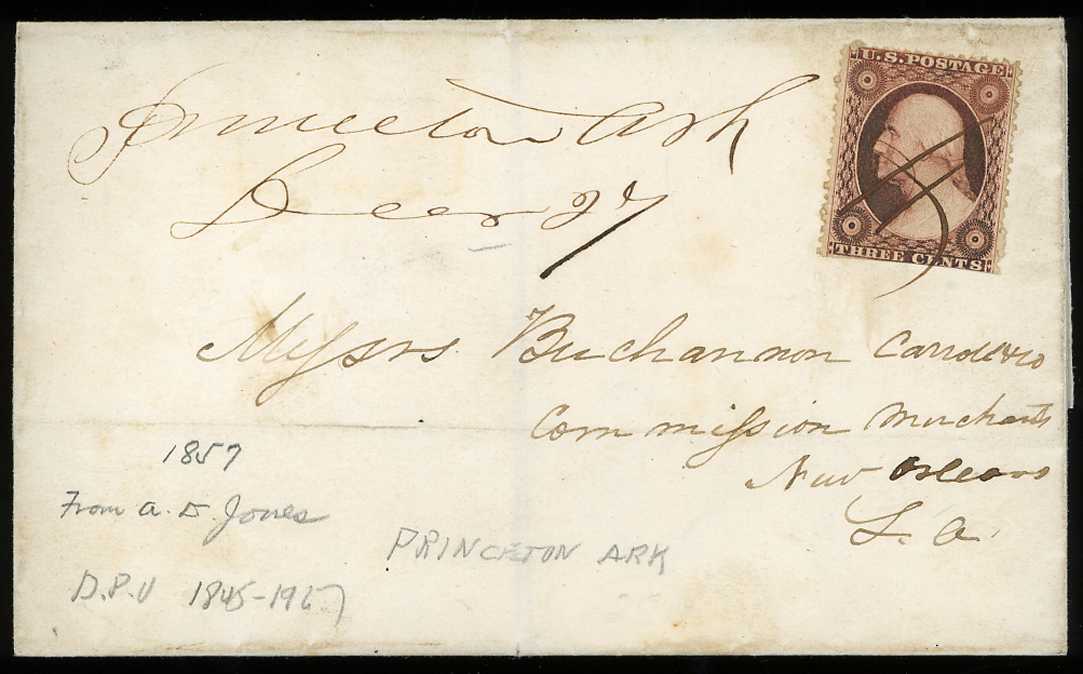 Princeton Ark
Decr 27
U.S. POSTAGE
THREE CENTS
Messrs Buchannon Carroll & Co
Commission Merchants
New Orleans
La.
1857
From A. D. Jones
PRINCETON ARK
D.P.O 1845-1967